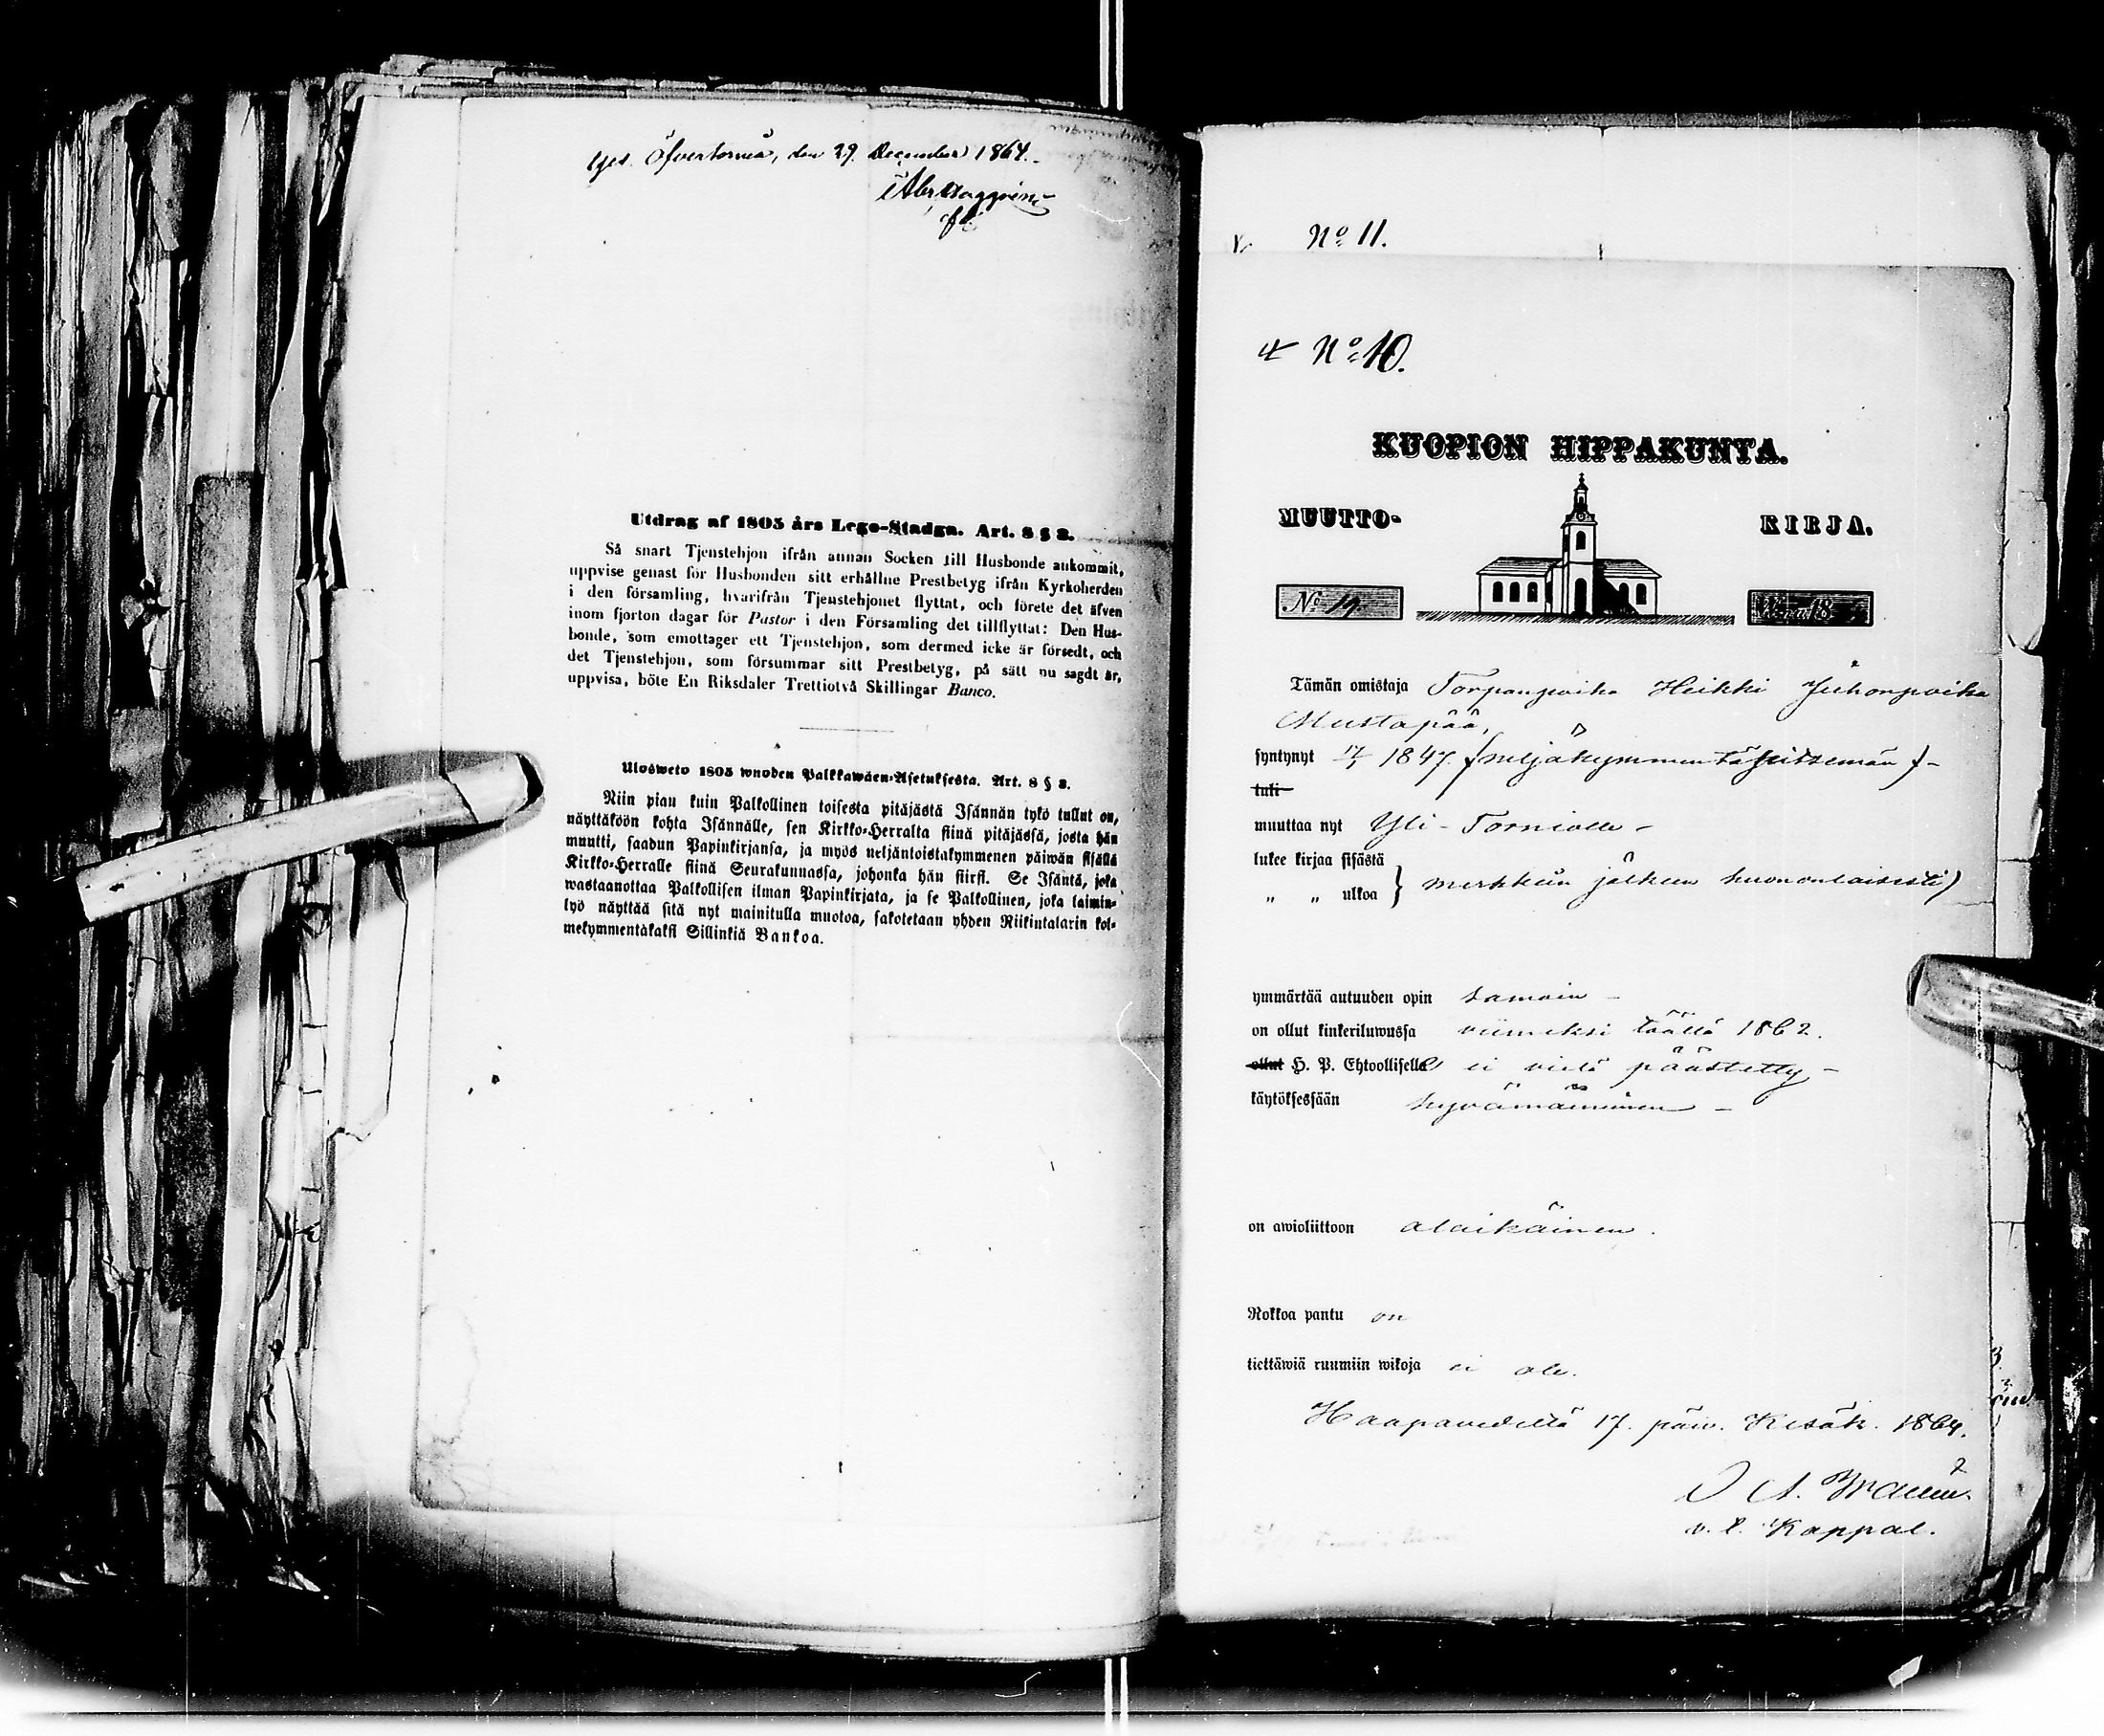 Öfvertorneå, den 29. December 1864.
Utdrag af 1805 års Lego-Stadga. Art. 8 § 3.
Så snart Tjenstehjon ifrån annan Socken till Husbonde ankommit,
uppvise genast för Husbonden sitt erhållne Prestbetyg ifrån Kyrkoherden
i den församling, hvarifrån Tjenstehjonet flyttat, och förete det äfven
inom fjorton dagar för Pastor i den Församling det tillflyttat: Den Hus-
bonde, som emottager ett Tjenstehjon, som dermed icke är försedt, och
det Tjenstehjon, som försummar sitt Prestbetyg, på sätt nu sagdt är,
uppvisa, böte En Riksdaler Trettiotvå Skillingar Banco.
Ulosweto 1805 wuoden Palkkawäen-Asetuksesta. Art. 8 § 3.
Niin pian kuin Palkollinen toisesta pitäjästä Isännän tykö tullut on,
näyttäköön kohta Isännälle, sen Kirkko-Herralta siinä pitäjässä, josta hän
muutti, saadun Papinkirjansa, ja myös neljäntoistakymmenen päiwän sisällä
Kirkko-Herralle siinä Seurakunnassa, johonka hän siirsi. Se Isäntä, joka
wastaanottaa Palkollisen ilman Papinkirjata, ja se Palkollinen, joka laimin-
lyö näyttää sitä nyt mainitulla muotoa, sakotetaan yhden Riikintalarin kol-
mekymmentäkaksi Sillinkiä Bankoa.
No 11.
No 10.
KUOPION HIPPAKUNTA.
MUUTTO- KIRJA.
No 19.
Tämän omistaja Torpanpoika Heikki Juhonpoika
Mustapää,
syntynyt 17/1 1847 (neljäkymmentäseitsemän) -
tuli
muuttaa nyt Yli-Torniolle -
lukee kirjaa sisästä
" " ulkoa } merkkein jälkeen huononlaisesti)
ymmärtää autuuden opin samoin -
on ollut kinkeriluwussa viimeksi täällä 1862.
ollut H. P. Ehtoollisella ei vielä päästetty -
käytöksessään hyvämäinen -
on awioliittoon alaikäinen.
Rokkoa pantu on
tiettäwiä ruumiin wikoja ei ole.
Haapavedellä 17. päiv. Kesäk. 1864.
v. t. Kappal.